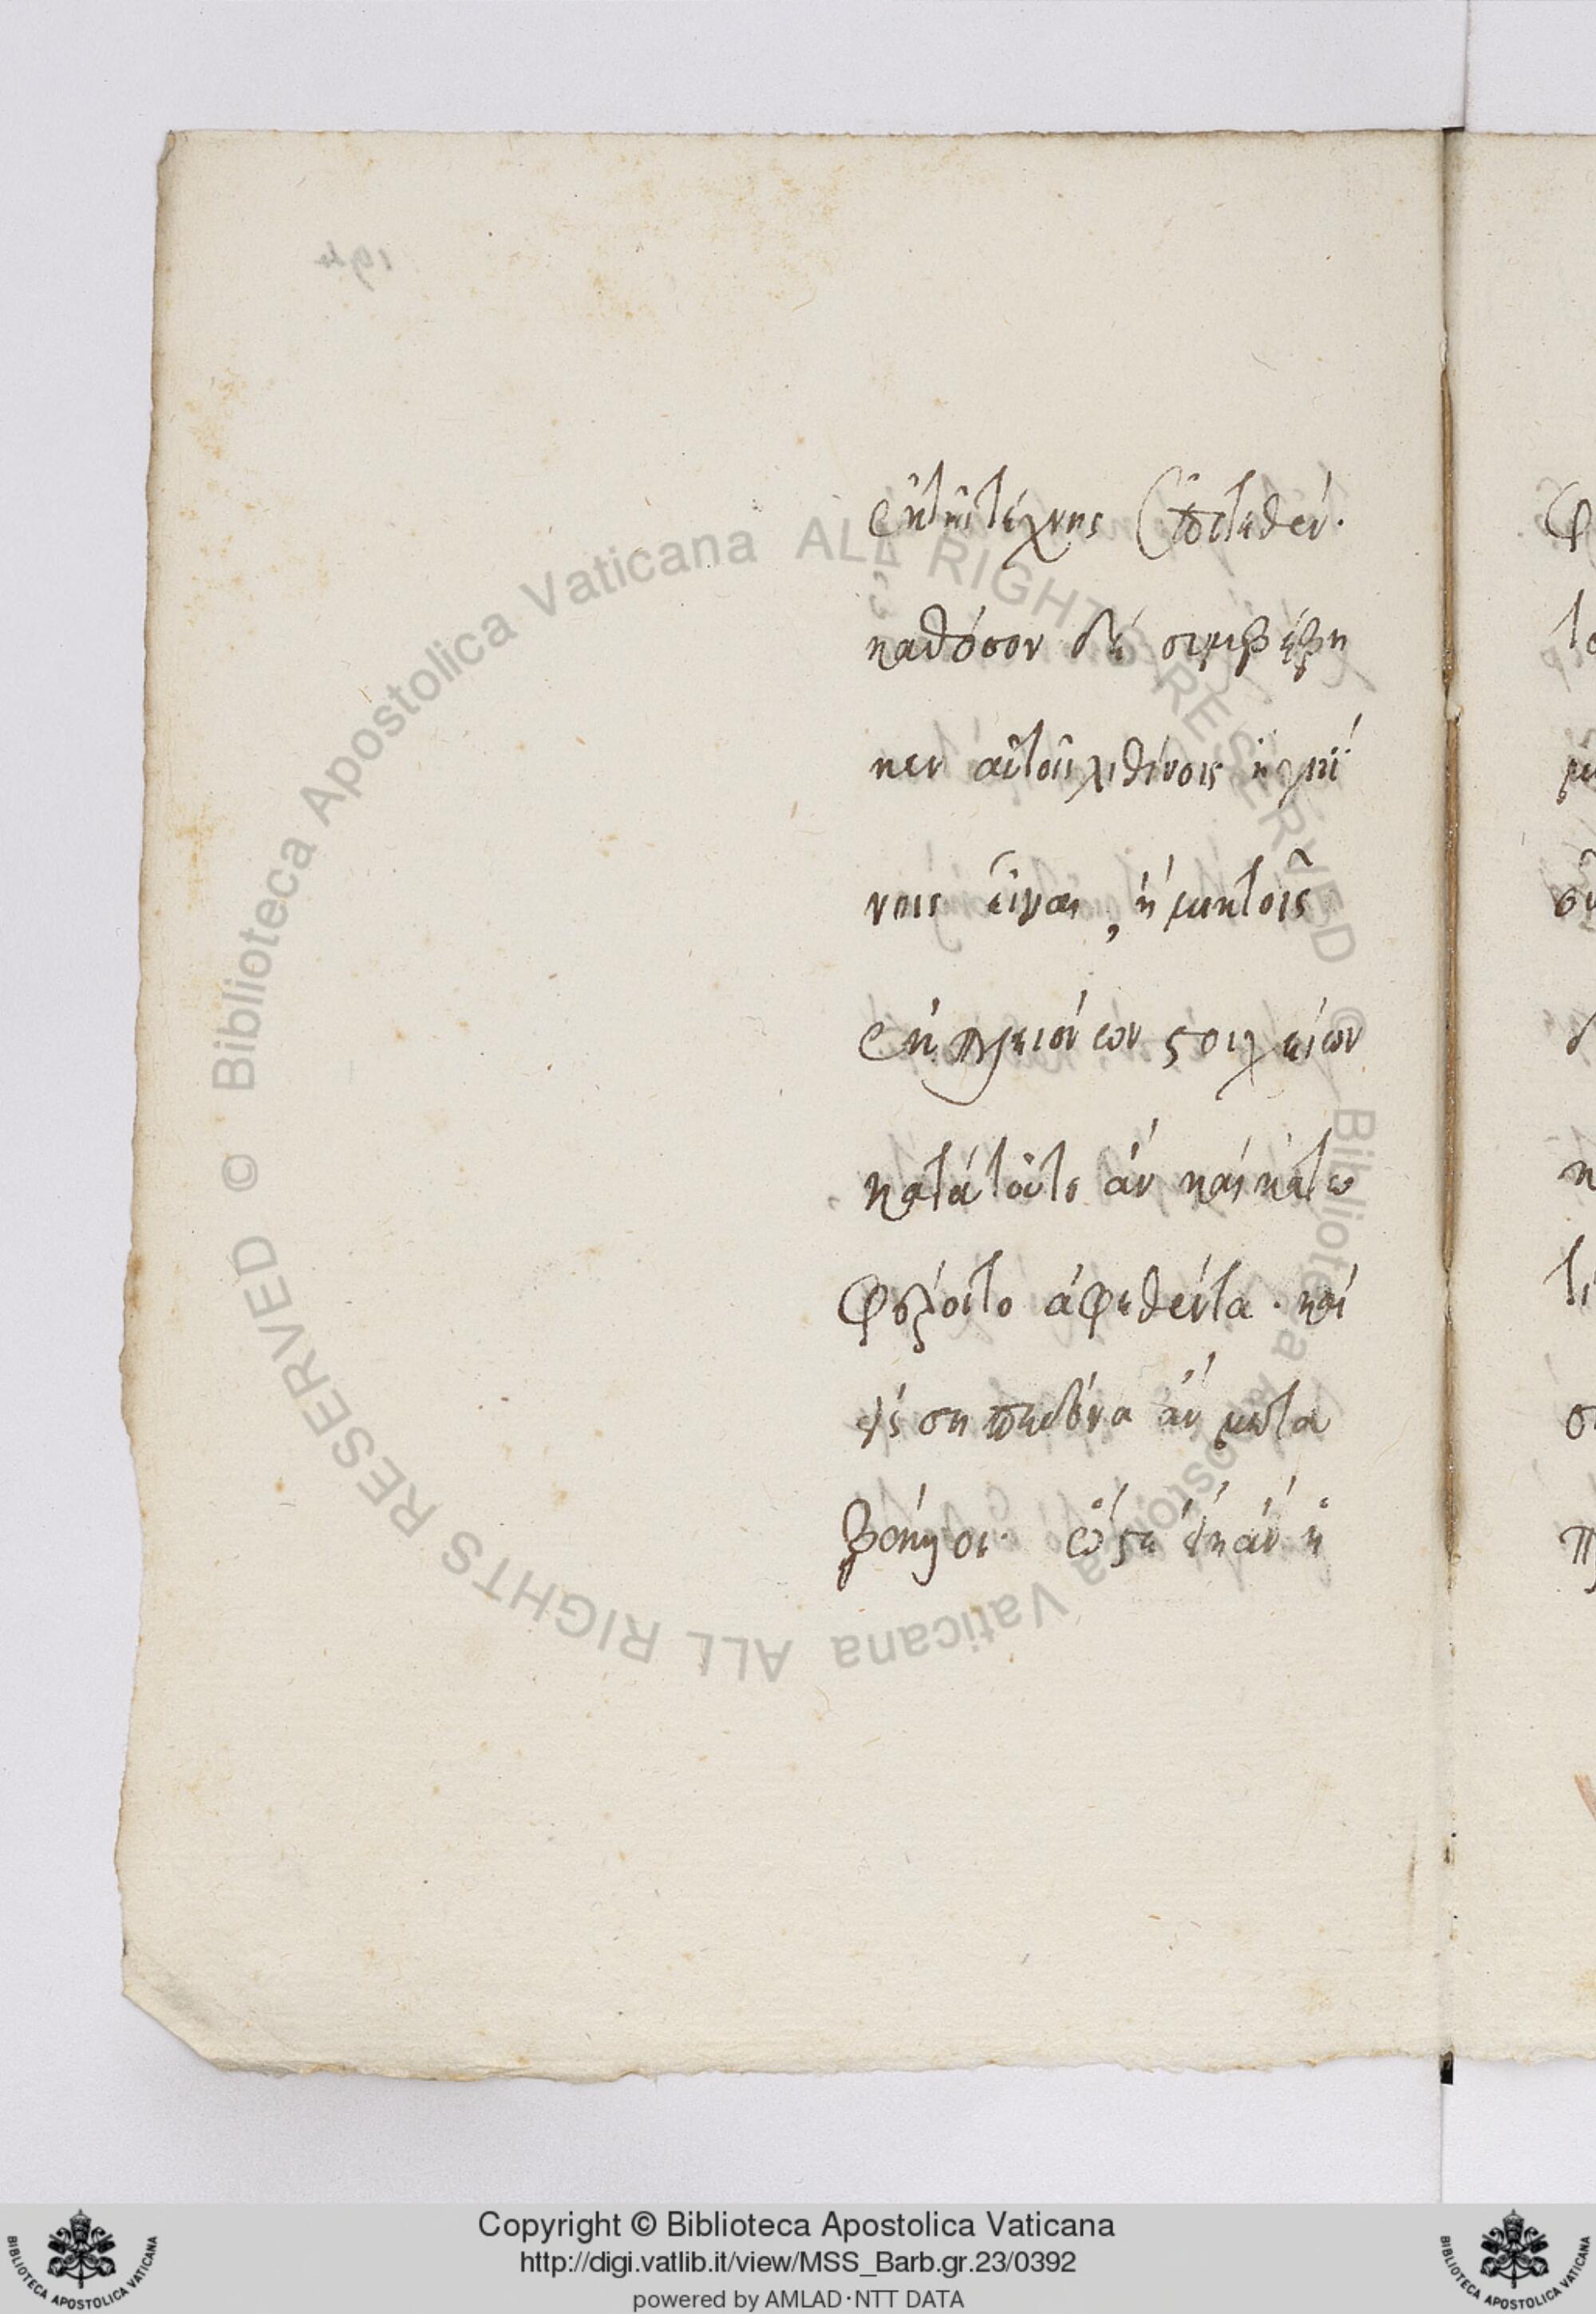 ἐκ τῆς τέχνης ἐποιτεθέν.
καθόσον δὲ συμβέβη
κεν αὐτοῖς λιθίνοις ἢ γηΐ
νοις εἶναι, ἢ μικτοῖς
ἐκ πλειόνων στοιχείων
κατὰ τοῦτο ἂν καὶ κάτω
φέροιτο ἀφεθέντα. καὶ
ἐς σηπεδόνα ἂν μετα
βάλλοι. ὥστε ἐὰν ἡ
Copyright © Biblioteca Apostolica Vaticana
http://digi.vatlib.it/view/MSS_Barb.gr.23/0392
powered by AMLAD·NTT DATA
Biblioteca Apostolica Vaticana ALL RIGHTS RESERVED ©
Biblioteca Apostolica Vaticana ALL RIGHTS RESERVED ©
BIBLIOTECA APOSTOLICA VATICANA
BIBLIOTECA APOSTOLICA VATICANA